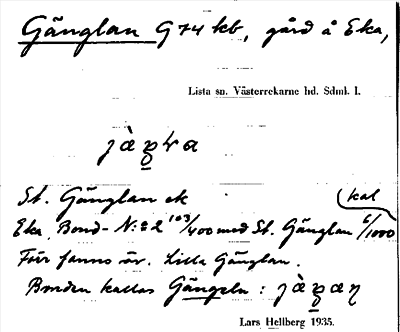 Gänglan G 74 kb, gård å Eka,
Lista sn. Västerrekarne hd. Sdml. l.
St. Gänglan ek (kal
Eka, Bond- N:o 2 103/400 med St. Gänglan 6/1000
Förr fanns äv. Lilla Gänglan.
Bonden kallas Gängeln :
Lars Hellberg 1935.